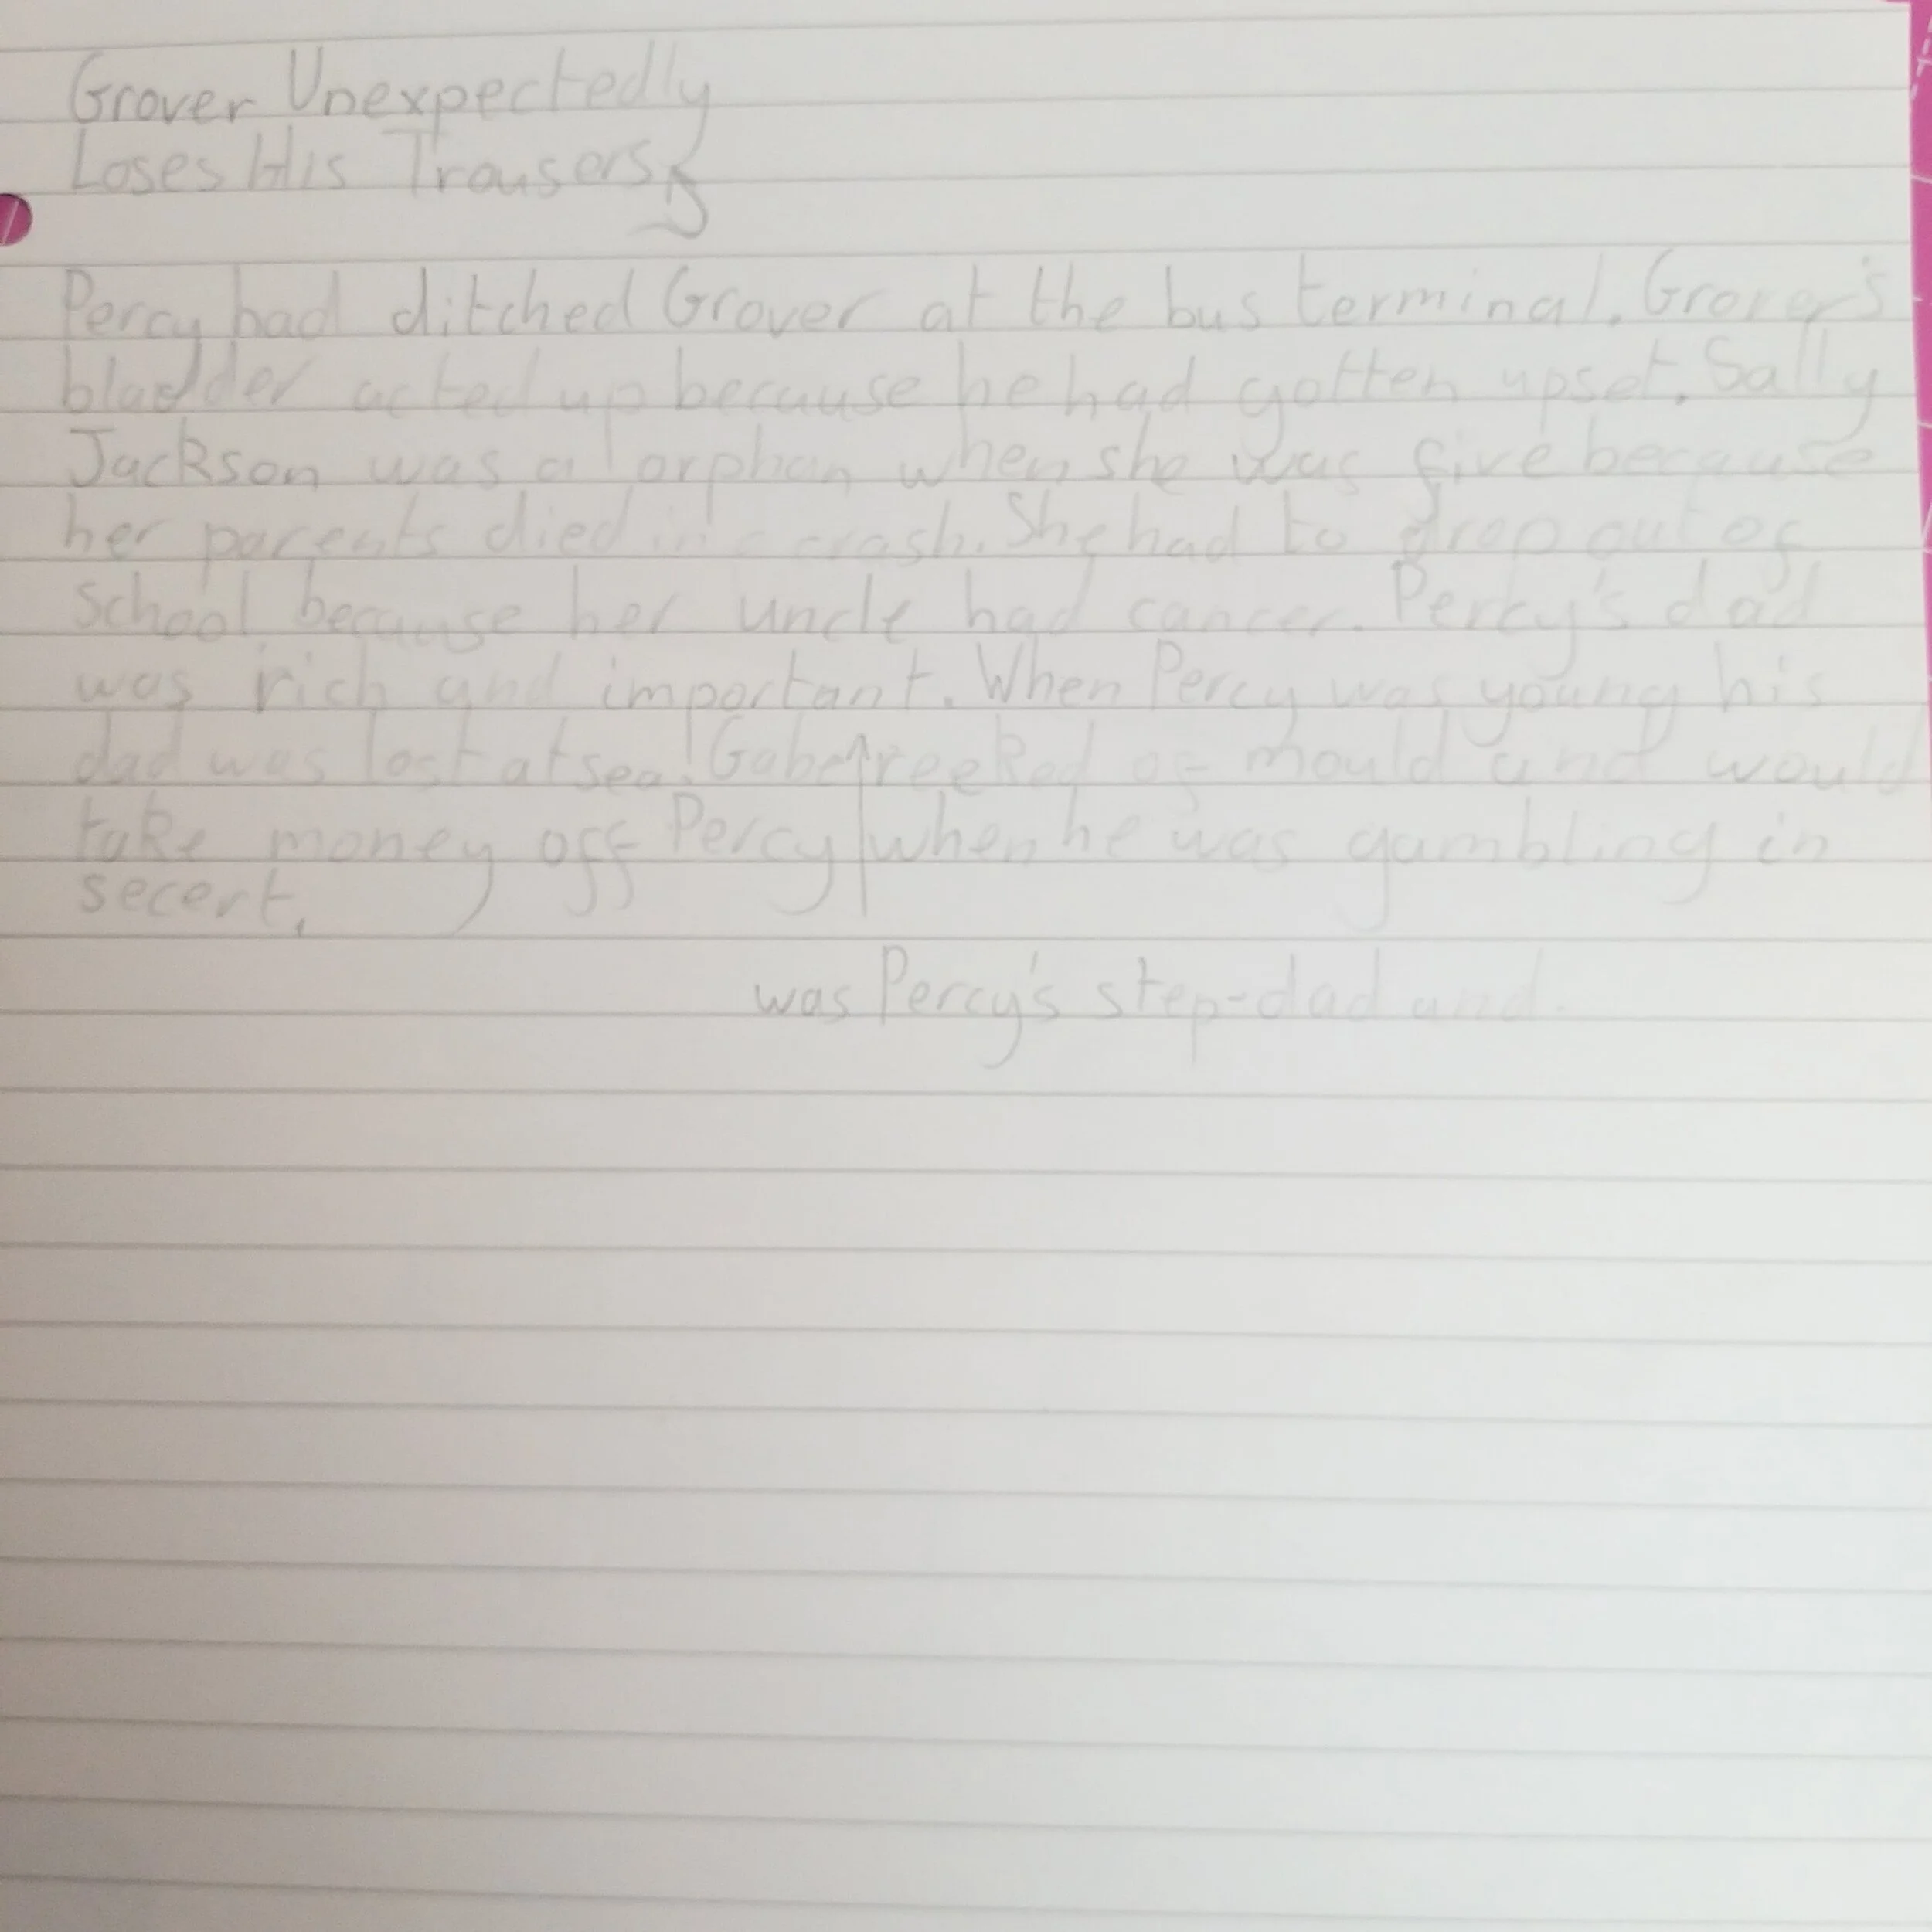 Grover Unexpectedly
Loses His Trousers
Percy had ditched Grover at the bus terminal. Grover's
bladder acted up because he had gotten upset. Sally
Jackson was a orphan when she was five because
her parents died in a crash. She had to drop out of
school because her uncle had cancer. Percy's dad
was rich and important. When Percy was young his
dad was lost at sea! Gabe reeked of mould and would
take money off Percy when he was gambling in
secert.
was Percy's step-dad and